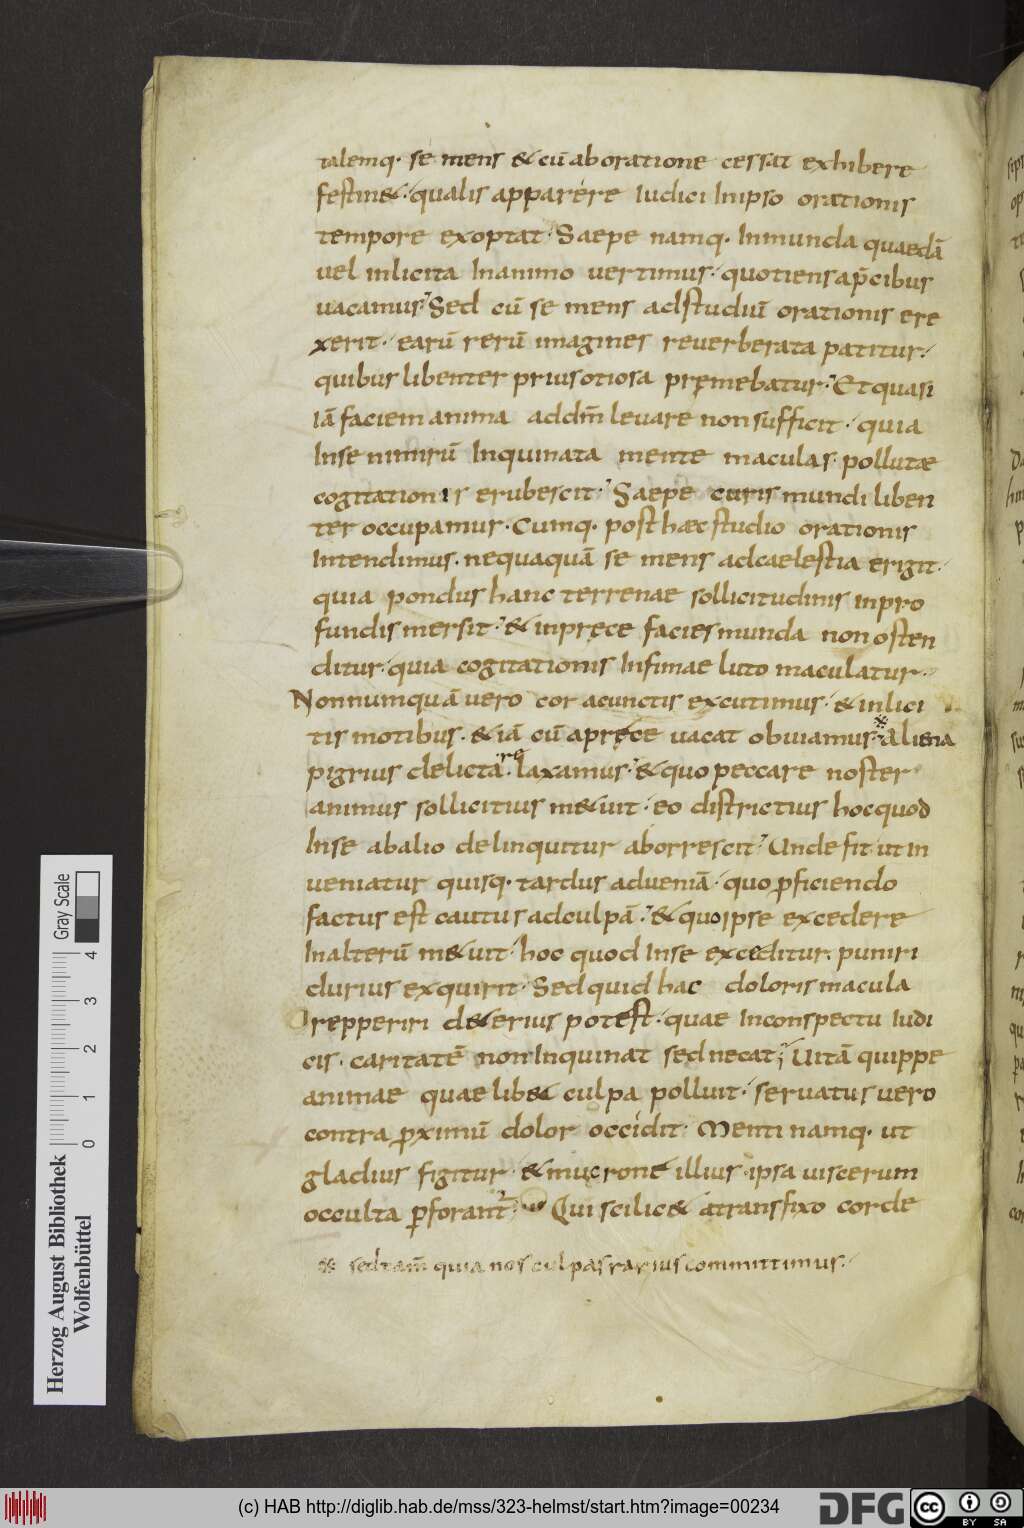 talemq· se mens & cū ab oratione cessat exhibere
festin& qualis apparere iudici in ipso orationis
tempore exoptat· Saepe namq· inmunda quaedā
uel inlicita in animo uertimus· quotiens a p̄cibus
uacamus· Sed cū se mens ad studiū orationis ere
xerit· earū rerū imagines reuerberata patitur·
quibus libenter prius otiosa pręmebatur· Et quasi
iā faciem anima ad dm̄ leuare non sufficit· quia
in se nimirū inquinata mente maculas pollutæ
cogitationis erubescit· Saepe curis mundi liben
ter occupamur· Cumq· post hæc studio orationis
intendimus· nequaquā se mens ad caelestia erigit·
quia pondus hanc terrenae sollicitudinis in pro
fundis mersit· & in pręce facies munda non osten
ditur· quia cogitationis infimae luto maculatur·
Nonnumquā uero cor a cunctis excutimus· & inlici
tis motibus· & iā cū a pręce uacat obuiamus· aliena
pigrius delicta· re laxamus· & quo peccare noster
animus sollicitius m&uit· eo districtius hoc quod
in se ab alio delinquitur aborrescit· Unde fit ut in
ueniatur quisq· tardus ad ueniā· quo p̱ficiendo
factus est cautus ad culpā· & quo ipse excedere
in alterū m&uit· hoc quod in se exceditur puniri
durius exquirit· Sed quid hac doloris macula
repperiri d&erius potest· quae in conspectu iudi
cis· caritatē non inquinat sed necat; Uitā quippe
animae quaelib& culpa polluit· seruatus uero
contra p̱ximū dolor occidit· Menti namq· ut
gladius figitur· & mucrone illius ipsa uiscerum
occulta p̱forant᷑· Qui scilic& a transfixo corde
※ sed tam̄ quia nos culpas rarius committimus·
Herzog August Bibliothek
Wolfenbüttel
Gray Scale
0 1 2 3 4
(c) HAB http://diglib.hab.de/mss/323-helmst/start.htm?image=00234
DFG
cc BY SA